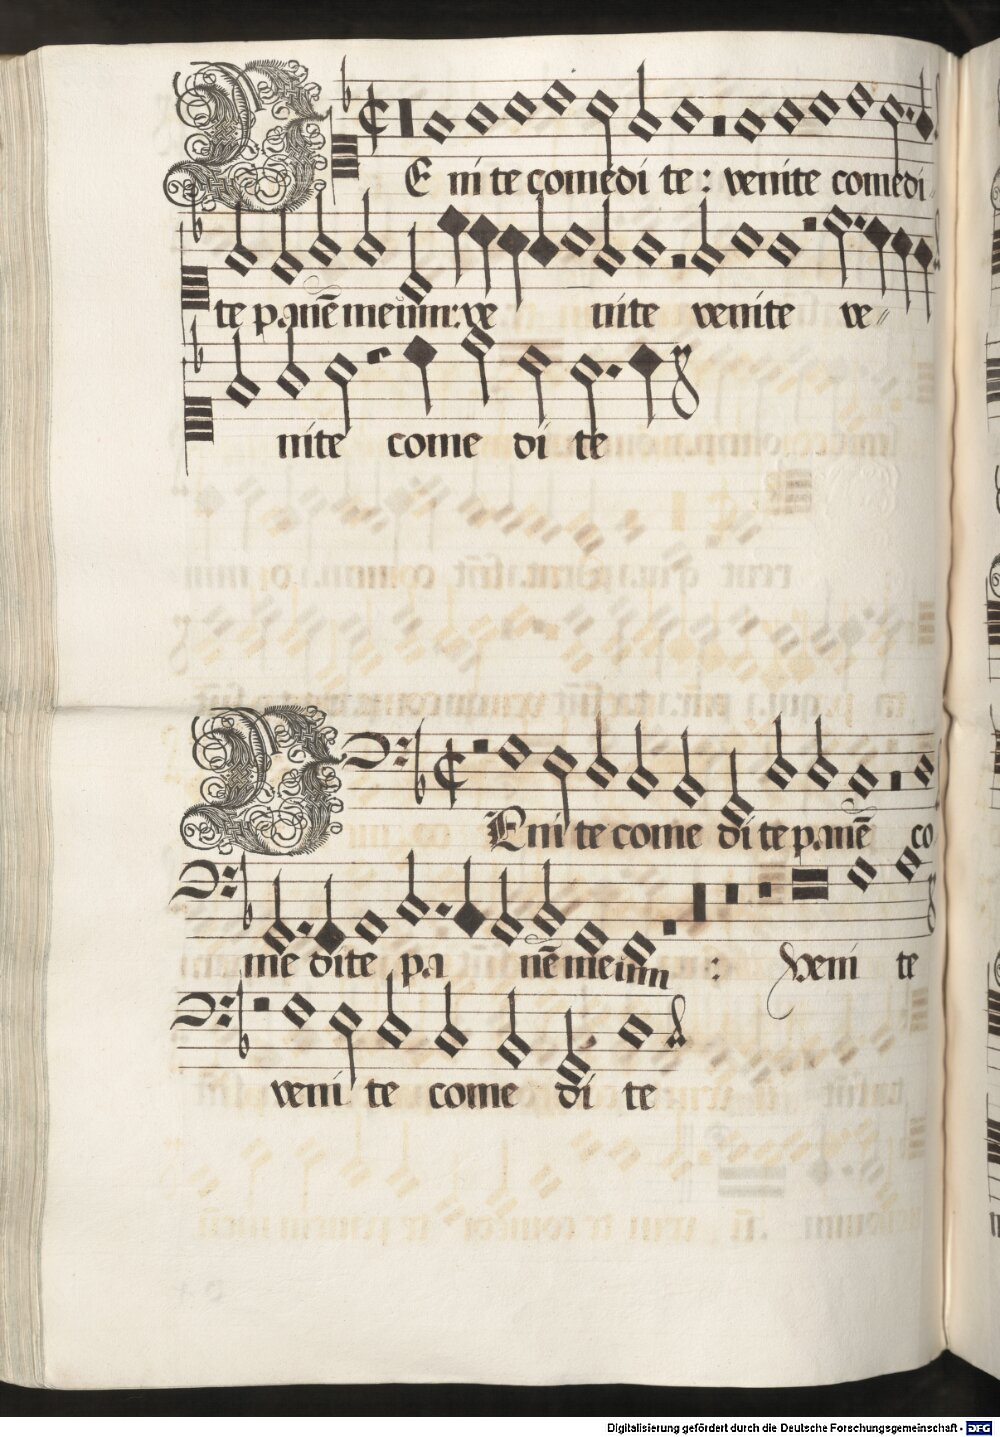 VE ni te comedi te : venite comedi
te panē meum : ve nite venite ve
nite come di te
VEni te come di te panē co
me dite pa nē meum : Veni te
veni te come di te
Digitalisierung gefördert durch die Deutsche Forschungsgemeinschaft - DFG